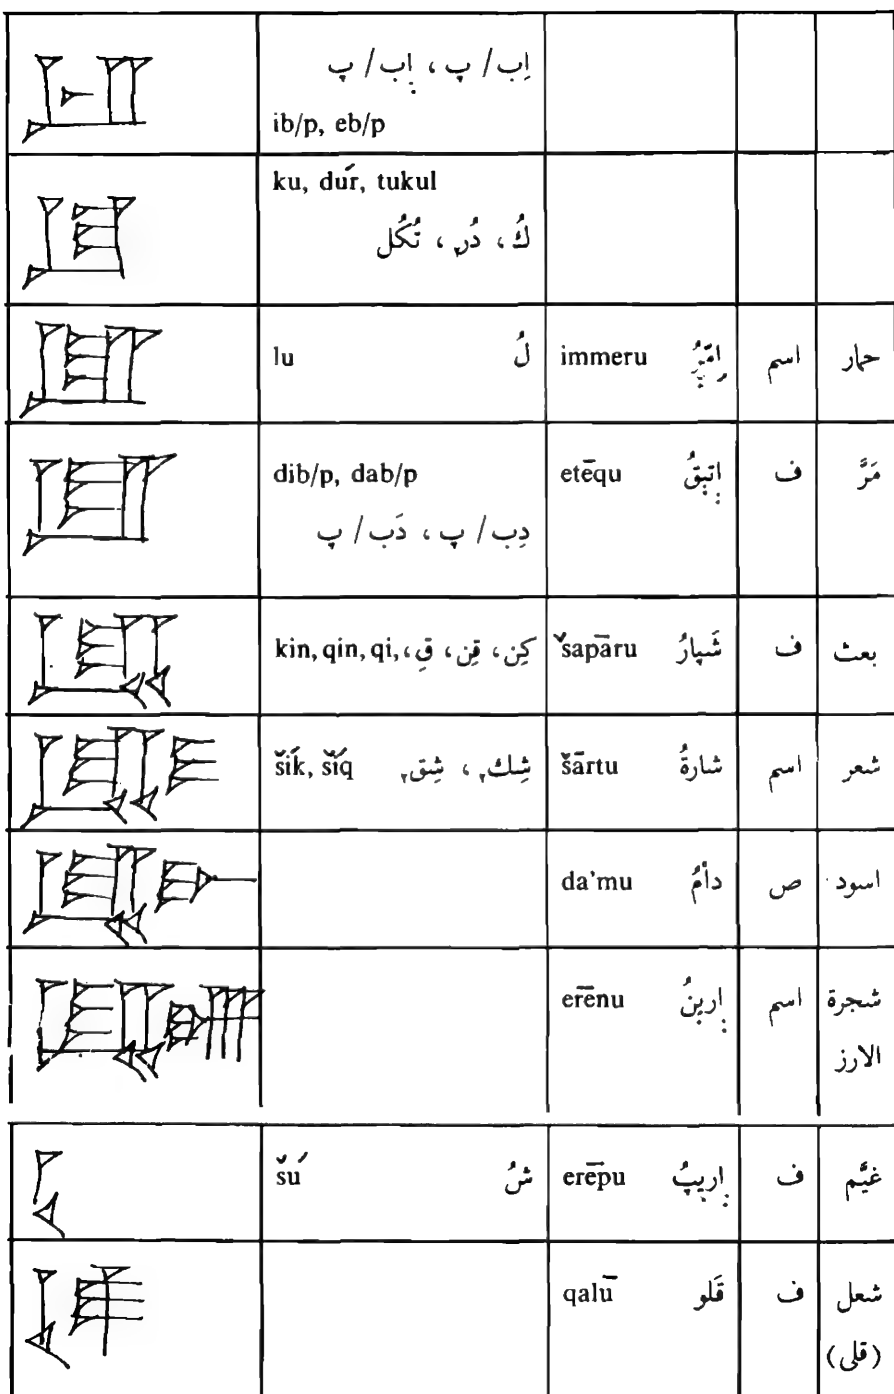 اِب / پ ، اِٜب / پ
ib/p, eb/p
ku, dúr, tukul
كُ ، دُر ، تُكُل
lu لُ immeru اسم حمار
dib/p, dab/p etēqu ف مَرَّ
دِب / پ ، دَب / پ
kin, qin, qi, كِن ، قِن ، قِ ، šapāru شَپارُ ف بعث
šík, šíq شِك ، شِق šārtu شارةُ اسم شعر
da'mu دأمُ ص اسود
erēnu اِرينُ اسم شجرة
الارز
šú شُ erēpu اِريپُ ف غيَّم
qalū قَلو ف شعل
(قلى)